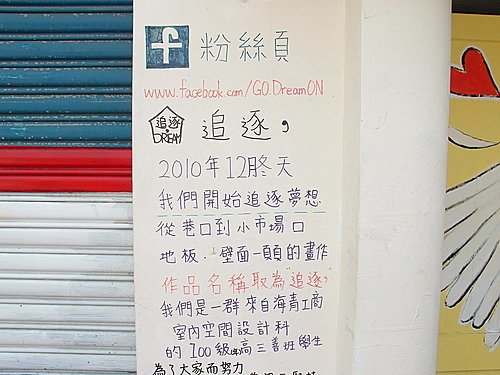 f 粉絲頁
www.facebook.com/GO.DreamON
追逐 DREAM 追逐,
2010年12月冬天
我們開始追逐夢想
從巷口到小市場口
地板.壁面一顆顆的畫作
作品名稱取為"追逐,
我們是一群來自海青工商
室內空間設計科
的100級高三善班學生
為了大家而努力